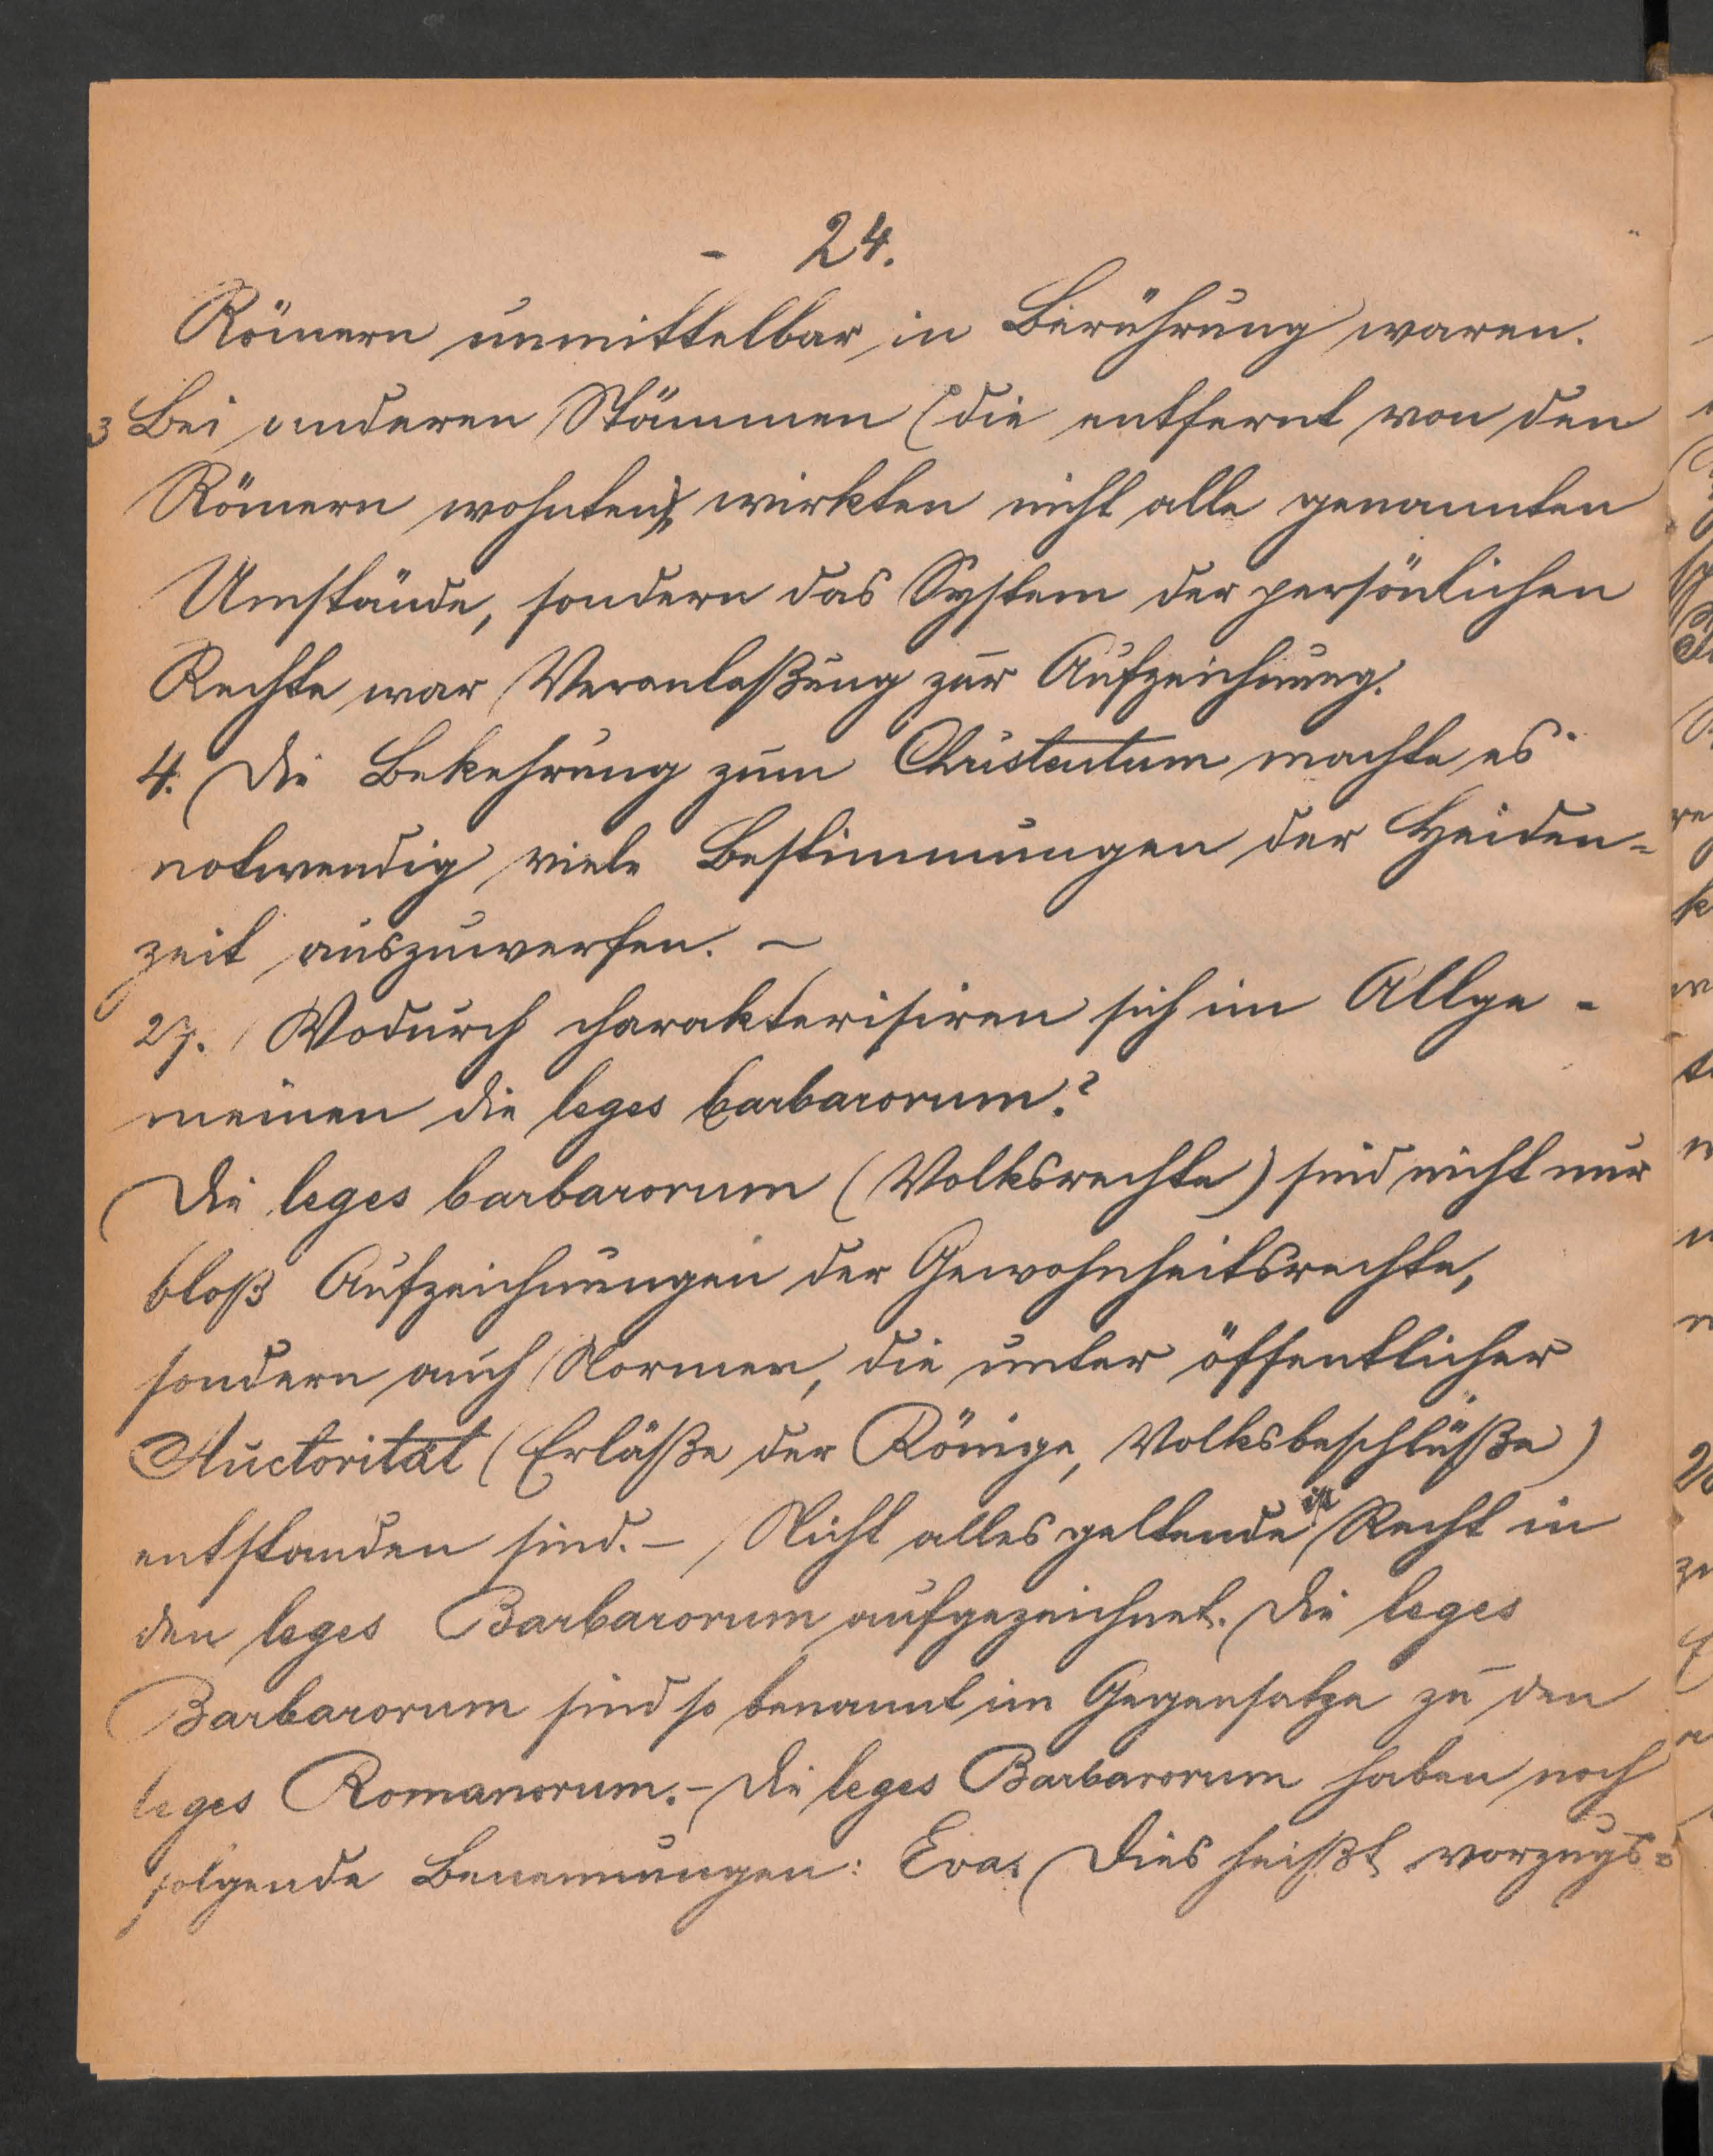 - 24.
Römern unmittelbar in Berührung waren.
3 Bei anderen Stämmen (die entfernt von den
Römern wohnten), wirkten nicht alle genannten
Umstände, sondern das System der persönlichen
Rechte war Veranlaßung zur Aufzeichnung.
4. Die Bekehrung zum Christentum machte es
notwendig viele Bestimmungen der Heiden-
zeit auszuwerfen. –
27. Wodurch charakterisiren sich im Allge-
meinen die leges barbarorum?
Die leges barbarorum (Volksrechte) sind nicht nur
bloß Aufzeichnungen der Gewohnheitsrechte,
sondern auch Normen, die unter öffentlicher
Auctorität (Erläße der Könige, Volksbeschlüße)
entstanden sind. – Nicht alles geltende ist Recht in
den leges Barbarorum aufgezeichnet. Die leges
Barbarorum sind so benannt im Gegensatze zu den
leges Romanorum. – Die leges Barbarorum haben noch
folgende Benennungen: Eva. Dies heißt vorzugs-